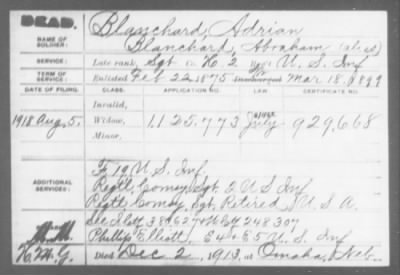 DEAD.
NAME OF SOLDIER: Blanchard, Adrian
Blanchard, Abraham (alias)
SERVICE: Late rank, Sgt Co. K, 2 Reg't U. S. Inf
TERM OF SERVICE: Enlisted Feb 22 1875 Mar 18, 1899
DATE OF FILING. CLASS. APPLICATION NO. LAW. CERTIFICATE NO.
Invalid,
1918 Aug. 5. Widow, 1,125,773 July 929,668
Minor,
ADDITIONAL SERVICES: F 19 U. S. Inf.
Regtl Comsy Sgt. 2 U S Inf
Regtl Comsy Sgt, Retired, U S A.
Phillip Elliott, E 4 & E 5 U. S. Inf
Died Dec 2, 1913, at Omaha, Neb.